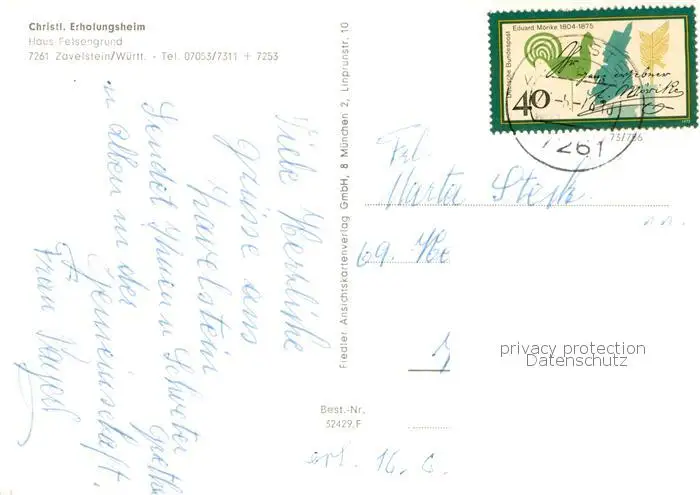 Christl. Erholungsheim
Haus Felsengrund
7261 Zavelstein/Württ. - Tel. 07053/7311 + 7253
Viele Herzliche
grüsse aus
Zavelstein
Sendet Ihnen Schwester
u allen in der
gemeinschaft.
Frau
Fiedler Ansichtskartenverlag GmbH, 8 München 2, Linprunstr. 10
Best.-Nr.
52429, F
Eduard Mörike 1804-1875
Deutsche Bundespost
40
ganz ergebner
Mörike
7261
Frl.
Marta Steck
69. He
privacy protection
Datenschutz
erl. 16. 6.